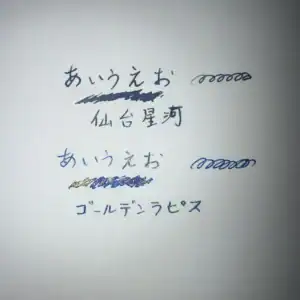 あいうえお
仙台星河
あいうえお
ゴールデンラピス